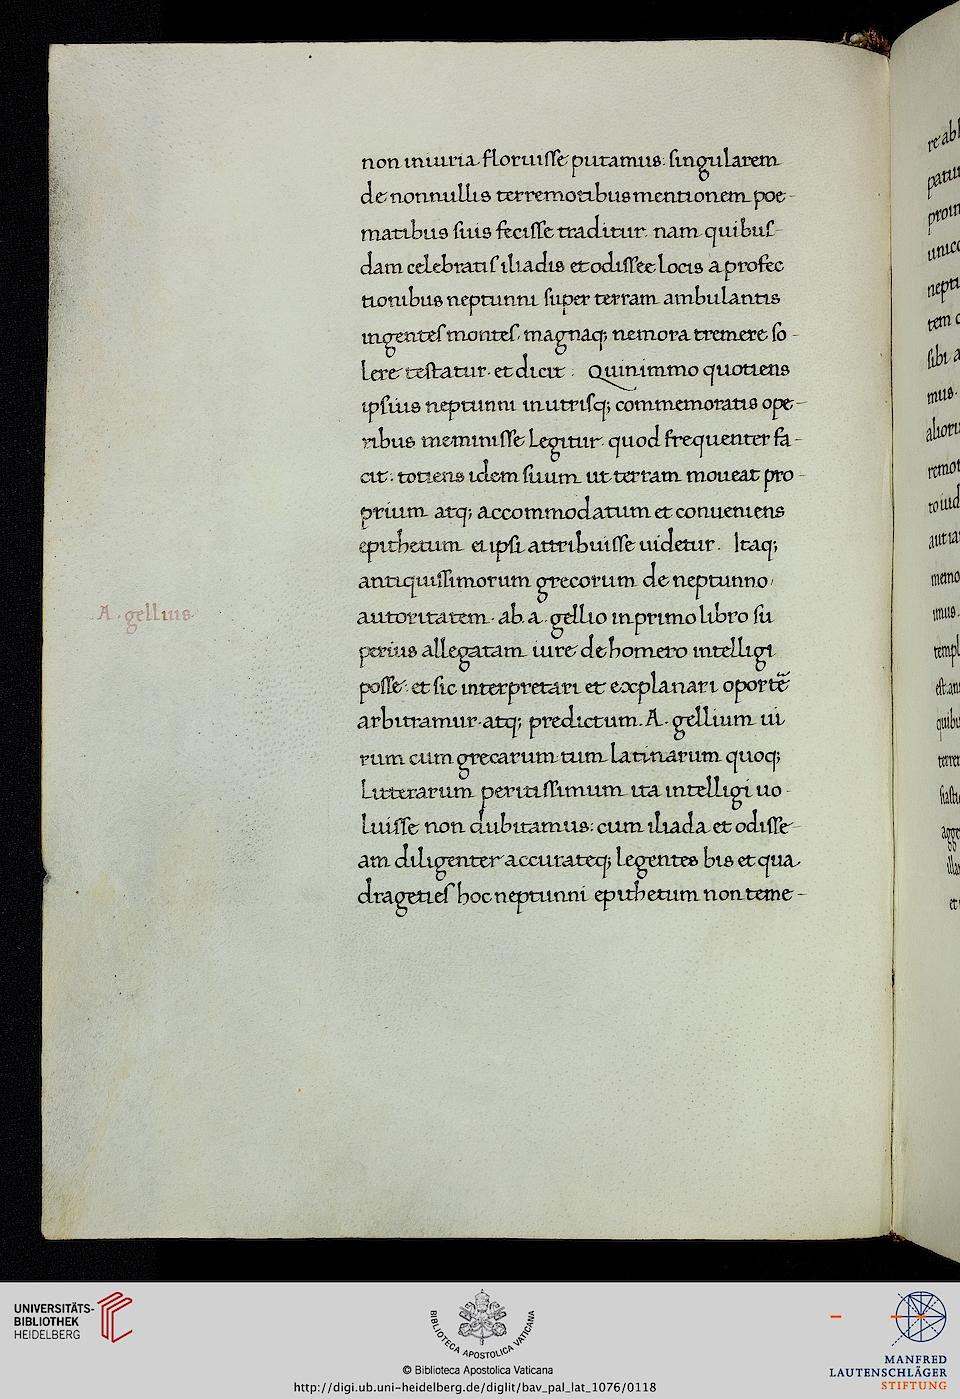 non iniuria floruisse putamus: singularem
de nonnullis terremotibus mentionem poe-
matibus suis fecisse traditur. nam quibus-
dam celebratis iliadis et odissee locis a profec
tionibus neptunni super terram ambulantis
ingentes montes, magnaq; nemora tremere so-
lere testatur. et dicit. Quinimmo quotiens
ipsius neptunni in utrisq; commemoratis ope-
ribus meminisse legitur. quod frequenter fa-
cit. totiens idem suum ut terram moueat pro-
prium atq; accommodatum et conueniens
epithetum ei ipsi attribuisse uidetur. Itaq;
antiquissimorum grecorum de neptunno,
A. gellius.
autoritatem. ab. a. gellio in primo libro su
perius allegatam iure de homero intelligi
posse. et sic interpretari et explanari oporte͂
arbitramur. atq; predictum. A. gellium ui
rum cum grecarum tum latinarum quoq;
litterarum peritissimum ita intelligi uo-
luisse non dubitamus: cum iliada et odisse-
am diligenter accurateq; legentes bis et qua
drageties hoc neptunni epithetum non teme-
UNIVERSITÄTS-
BIBLIOTHEK
HEIDELBERG
BIBLIOTECA APOSTOLICA VATICANA
© Biblioteca Apostolica Vaticana
http://digi.ub.uni-heidelberg.de/diglit/bav_pal_lat_1076/0118
MANFRED
LAUTENSCHLÄGER
STIFTUNG